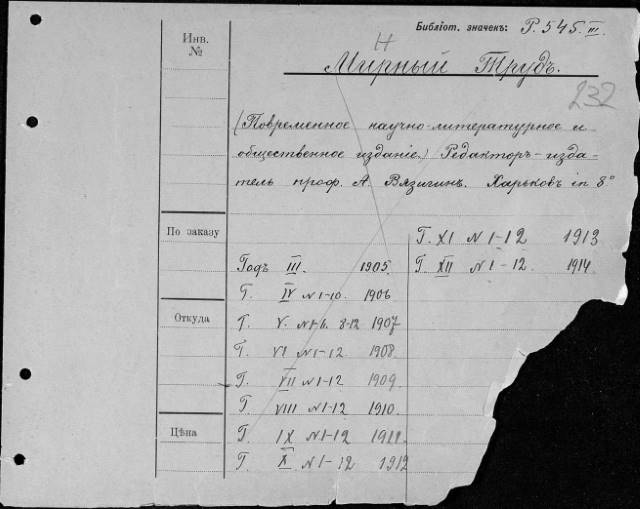 Библіот. значекъ: Р. 545. III.
Инв.
№
Н
Мирный Трудъ.
232
(Повременное научно-литературное и
общественное изданіе.) Редакторъ-изда-
тель проф. А. Вязигинъ. Харьковъ in 8°
По заказу
Откуда
Цѣна
Годъ III. 1905.
Г. IV N 1-10. 1906
Г. V. N 1-6. 8-12 1907
Г. VI N 1-12. 1908
Г. VII N 1-12 1909
Г. VIII N 1-12 1910.
Г. IX N 1-12 1911
Г. X N 1-12 1912
Г. XI N 1-12 1913
Г. XII N 1-12. 1914